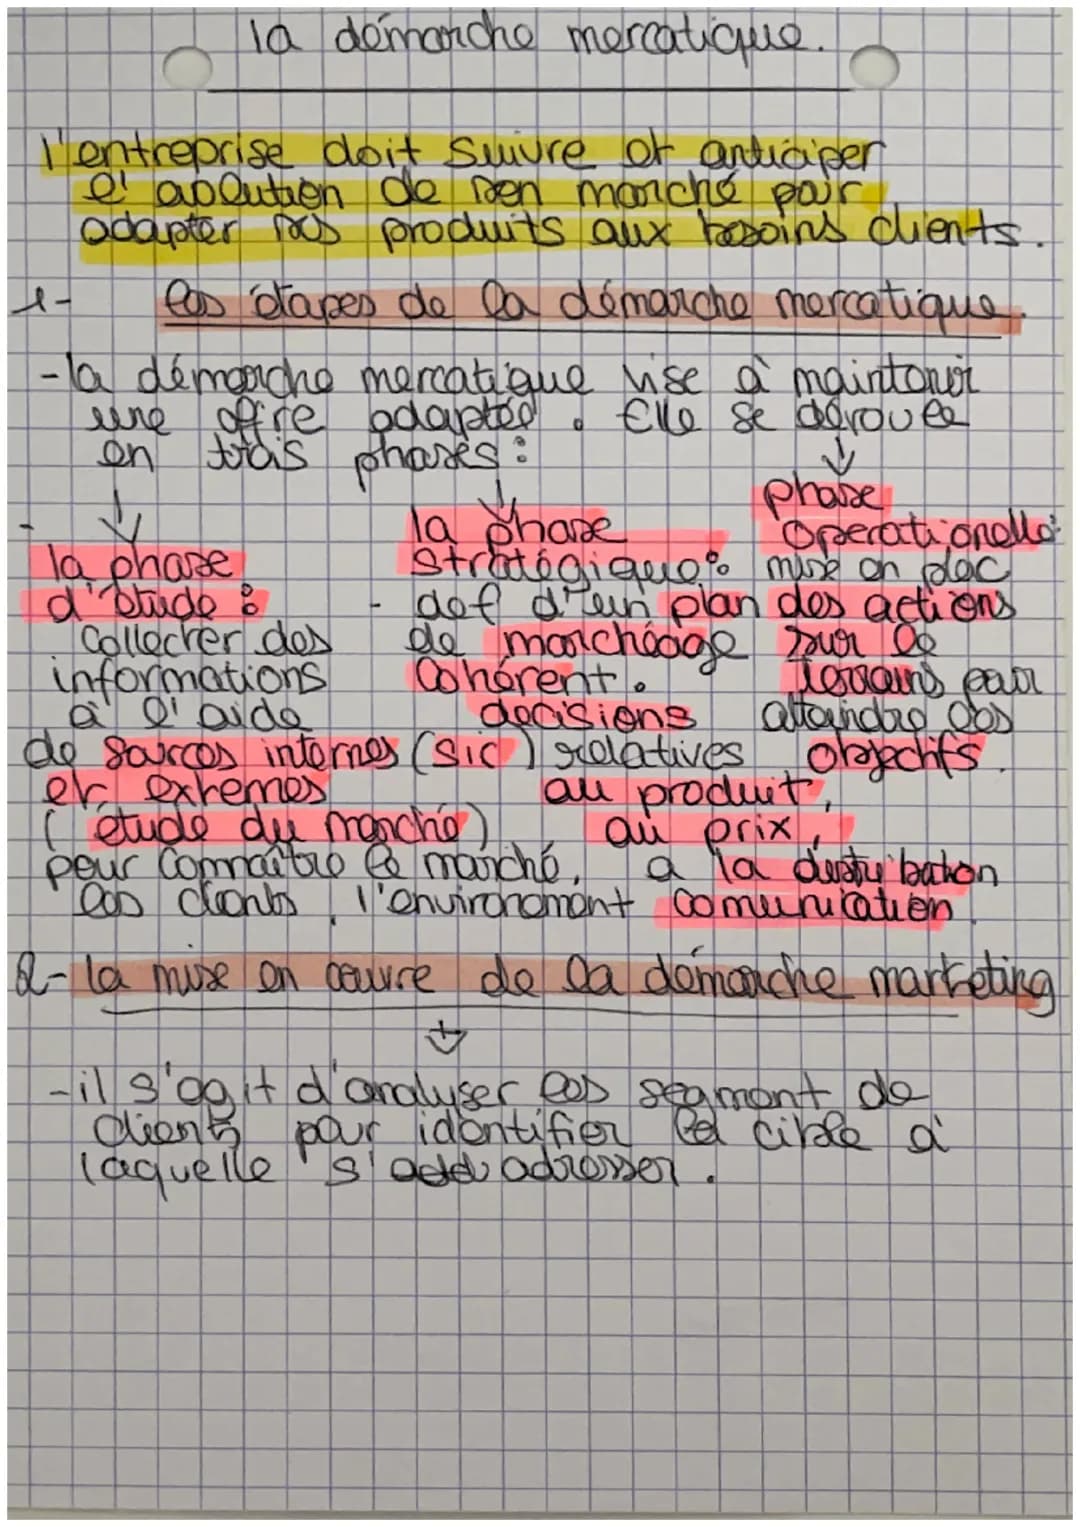 la démarche mercatique.
l'entreprise doit suivre et anticiper
l' evolution de son marché pour
adapter ses produits aux besoins clients.
1- les étapes de la démarche mercatique.
- la démarche mercatique vise à maintenir
une offre adaptée. Elle se déroule
en trois phases :
↓
la phase
d'étude :
collecter des
informations
à l'aide
de sources internes (sic)
et externes
(étude du marché)
pour connaître le marché,
les clients, l'environnement
↓
la phase
stratégique :
- def d'un plan
de marchéage
cohérent.
decisions
relatives
au produit,
au prix,
a la distribution
comunication.
↓
phase
operationelle :
mise en plac
des actions
sur le
terrains pour
attaindre les
objectifs.
2- la mise en œuvre de la démarche marketing
↓
- il s'agit d'analyser les segment de
clients pour identifier la cible à
laquelle s' adresser.